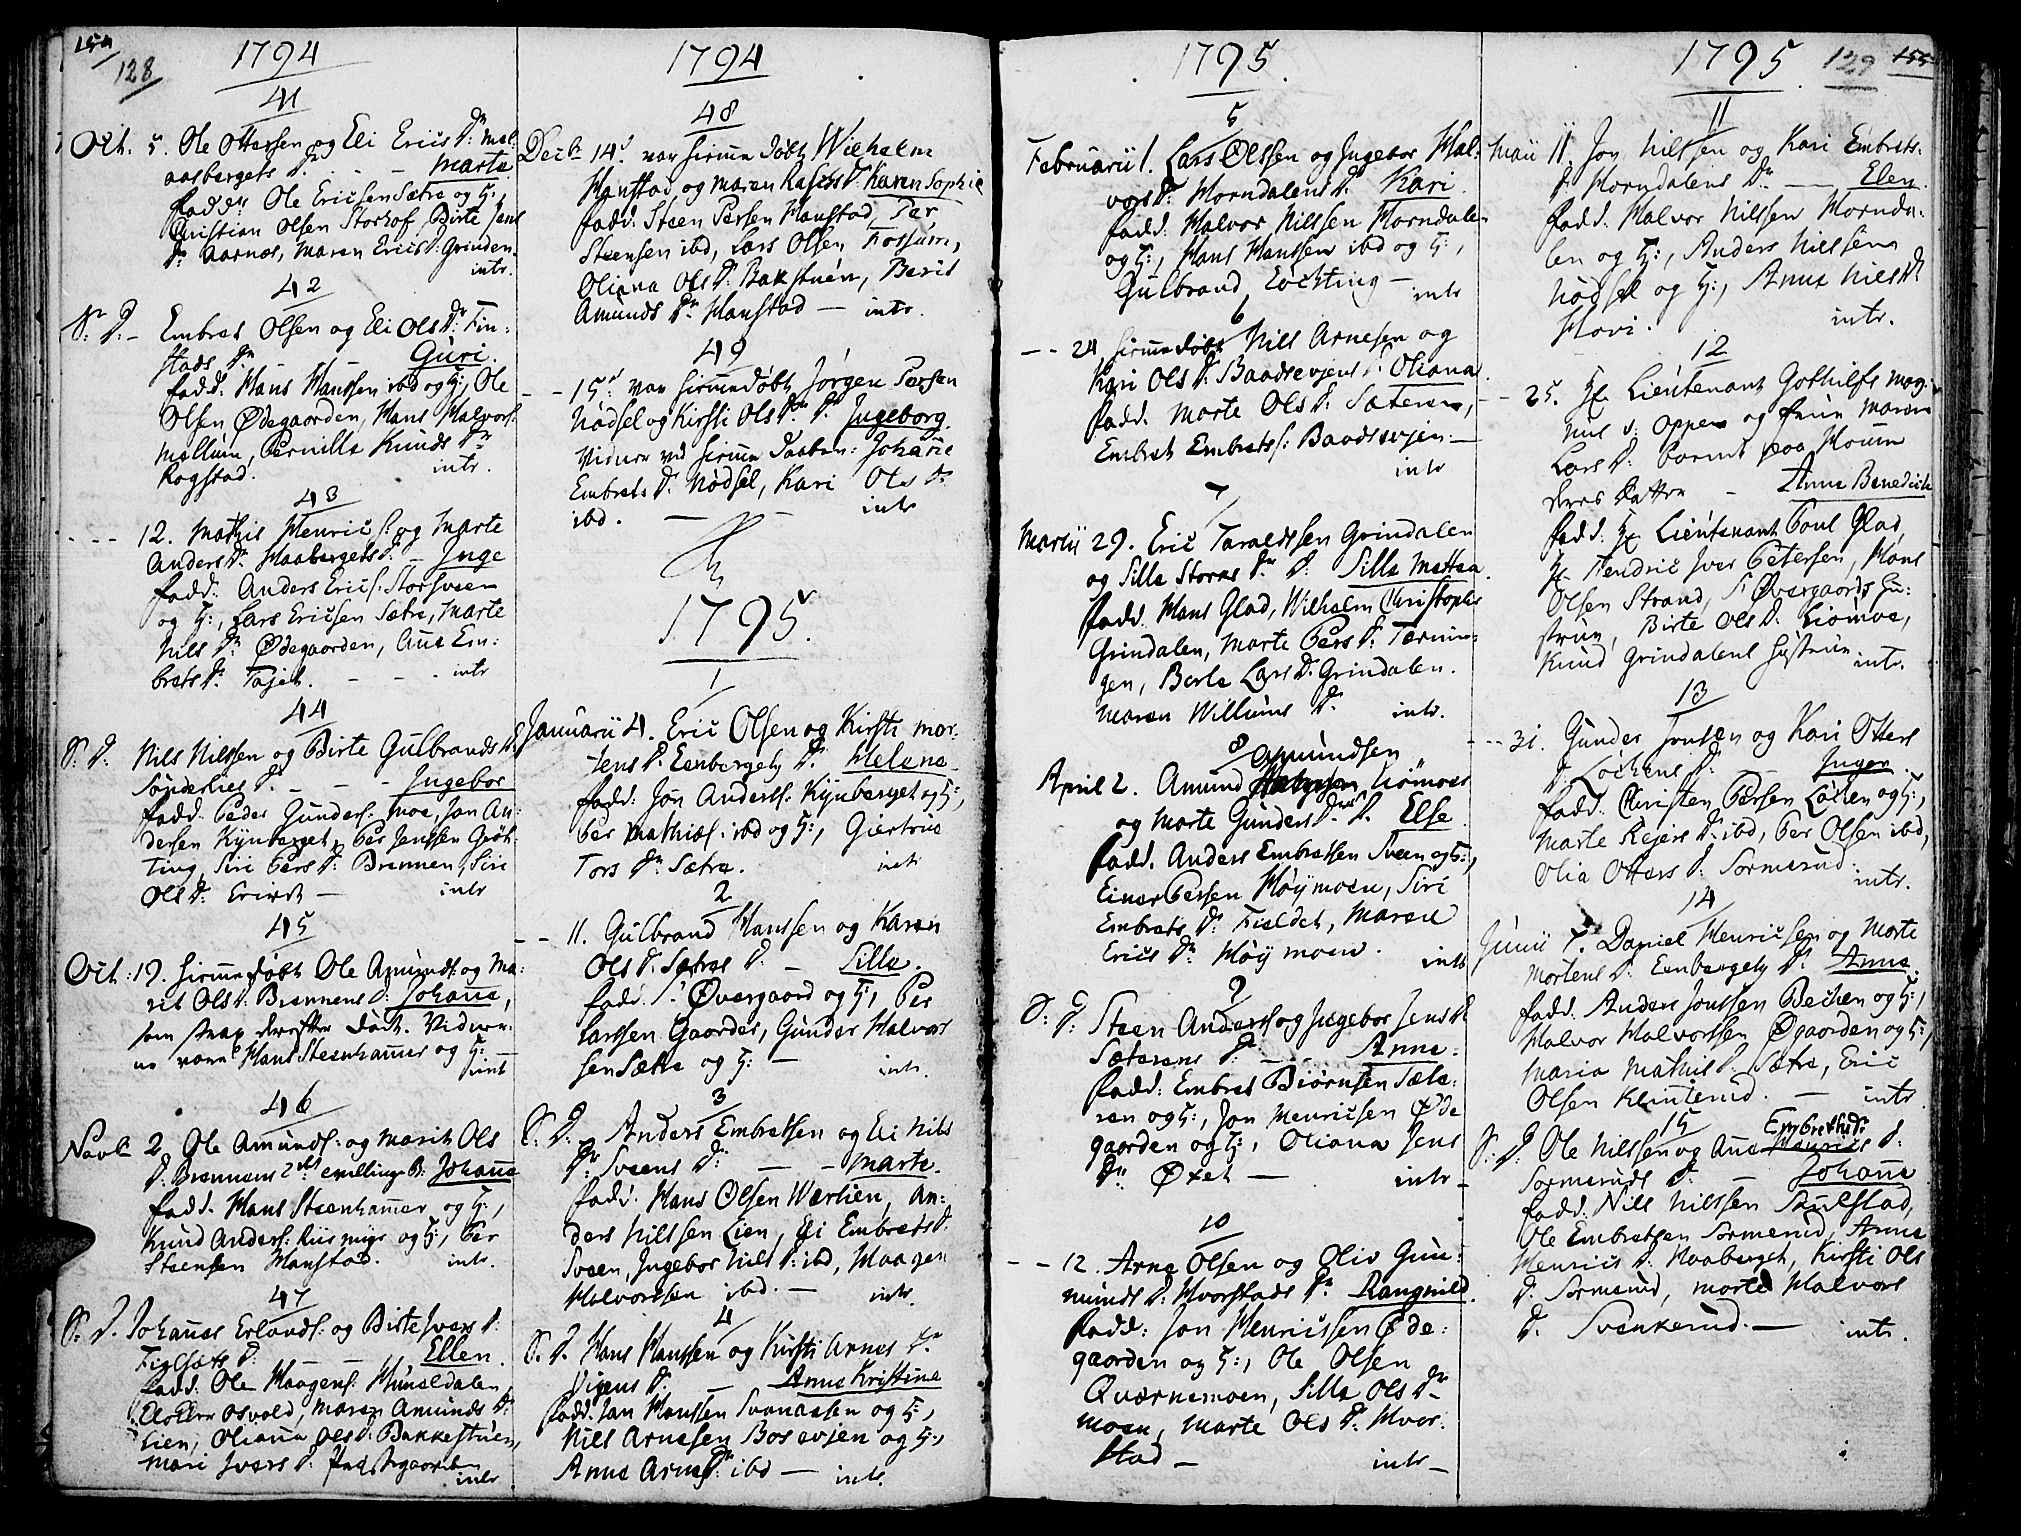 154
128
1794
41
Oct. 5. Ole Ottersen og Eli Erics Dr. Mel-
aasbergets Dr. - - Marte
fadd. Ole Ericsen Sætre og H:,
Christian Olsen Storhof, Birte Jens
Dr. Aarnæs, Maren Erics D: Grinden.
intr.
42
S: D: - Embret Olsen og Eli Ols Dr. Fin-
stads Dr. Guri.
fadd. Hans Hanssen ibd og H:, Ole
Olsen Ødegaarden, Hans Halvors:
Mellum, Pernille Knuds Dr.
Rogstad. intr.
43
12. Mathis Henric S. og Marte
Anders D. Haabergets D. - Inge
fadd. Anders Erics: Storsveen
og H:, Lars Ericsen Sætre, Marte
Nils Dr. Ødegaarden, Ane Em-
brets D. Tajet. - - intr
44
S: D: Nils Nilssen og Birte Gulbrands D.
Sønderlies D. - - - Ingebor
fadd. Peder Gunders: Moe, Jon An-
dersen Kynberget, Per Jenssen Grøt-
ting, Siri Pers D. Brennen, Siri
Ols D: - intr
45
Oct: 19. hiemmedøbt Ole Amunds: og Ma-
rit Ols D. Brennens D: Johanne,
som strax derefter døde. Vidner-
ne vare Hans Steenhammer og H:
intr
46
Novb. 2. Ole Amunds: og Marit Ols
D. Brennens 2de tvilling D: Johanne
fadd. Hans Steenhammer og H:,
Knud Anders: Riismyr og H:, Per
Steensen Hanstad. intr.
47
S: D. Johannes Erlands: og Birte Ivers D:
D: - - Ellen.
fadd. Ole Haagens: Hunaldalen,
Osvold, Maren Amunds D:
Lien, Oliana Ols D: Bakkestuen,
Mari Ivers D: intr
1794
48
Decb. 14. var hiemme døbt Wilhelm
Hanstad og Maren Lases D: Karen Sophie
fadd. Steen Persen Hanstad, Per
Steensen ibd, Lars Olsen Fossum,
Oliana Ols D. Bakstuen, Berit
Amunds Dr. Hanstad - intr.
49
- - 15. var hiemmedøbt Jørgen Persen
Nødsel og Kirsti Ols Dr. D: Ingeborg.
Vidner ved hiemme daaben: Johanne
Embrets D. Nødsel, Kari Ols D.
ibd. - - intr
1795.
1
Januarii 4. Eric Olsen og Kirsti Mor-
tens D. Eenbergets D. Helene
fadd. Jon Anders: Kynberget og H:,
Per Mathies: ibd og H:, Giertrue
Tors Dr. Sætre. intr
2
- - 11. Gulbrand Hanssen og Karen
Ols D. Sætres D. - Sille.
fadd. S. Øvergaard og H:, Per
Larssen Gaarder, Gunder Halvor
sen Sætre og H: - intr.
3
S: D: Anders Embretsen og Eli Nils
Dr. Sveens D: - - Marte.
fadd. Hans Olsen Wærlien, An-
ders Nilssen Lien, Eli Embrets D:
Sveen, Ingebor Nils D: ibd, Haagen
Halvorssen ibd. - intr.
4
S: D. Hans Hanssen og Kirsti Arnes Dr.
Vigens D. - Anne Kristine
fadd. Jan Hanssen Svenæssen og H:,
Nils Arnesen Bosevjen og H:,
Anne Arnes D: ibd - intr.
1795.
5
Februarii 1. Lars Olssen og Ingebor Hal-
vors D. Horndalens D. Kari.
fadd. Halvor Nilssen Horndalen
og H:, Hans Hanssen ibd og H:,
Gulbrand Løchting - intr
6
- - 24. hiemmedøbt Nils Arnesen og
Kari Ols D. Baadsevjens D. Oliana
fadd. Marte Ols D. Sæteren,
Embret Embrets: Baadsevjen. -
intr
7
Martii 29. Eric Taraldssen Grindalen
og Sille Stores Dr. D: Sille Mattea.
fadd. Hans Glad, Wilhelm Christophs
Grindalen, Marte Pers D. Tærnin-
gen, Berte Lars D. Grindalen.
Maren Willums D. intr.
8
Amundsen
April 2. Amund Liømoes
og Marte Gunders D. D. Else.
fadd. Anders Embretsen Sveen og H:,
Einer Persen Høymoen, Siri
Embrets D. Fieldet, Maren
Erics Dr. Høymoen. intr
9
S: D: Steen Anders: og Ingebor Jens D.
Sæterens D. - Anne.
fadd: Embret Biørnsen Sæte-
ren og H:, Jon Henricsen Øde
gaarden og H:, Oliana Jens
Dr. Øxet - intr -
10
- - 12. Arne Olsen og Oliv Gun-
munds D: Hvorstads Dr. Rangnild.
fadd: Jon Henricssen Øde-
gaarden og H:, Ole Olsen
Qværnemoen, Sille Ols Dr.
Moen, Marte Ols D. Hvor-
stad - intr -
1795.
129
155
11
Maii 11. Jon Nilssen og Kari Embrets
D. Horndalens Dr. - Elen.
fadd. Halvor Nilssen Hornda-
len og H:, Anders Nilssen
Nødsel og H:, Anne Nils D.
Hovi. intr.
12
- - 25. Hr. Lieutenant Gothilfs Mag-
nus v: Oppen og frue Maren
Lars D: barnet paa Houm
deres Datter - Anne Benedicte
fadd. Hr. Lieutenant Poul Glad,
Hr. Hendric Iver Petersen, Hans
Olsen Strand, S. Øvergaards Hu-
strue, Birte Ols D. Liømoe,
Knud Grindalens Hustrue intr.
13
- - 31. Gunder Jonsen og Kari Otters
D. Løckens D. - Inger.
fadd. Christen Persen Løcken og H:,
Marte Rejers D. ibd, Per Olsen ibd,
Olia Otters D. Sormerud. intr.
14
Junii 7. Daniel Henricsen og Marte
Mortens D. Eenbergets D. Anne.
fadd. Anders Jonssen Becken og H:,
Halvor Halvorssen Øgaarden og H:,
Maria Mathis D. Sætre, Eric
Olsen Klinterud. - intr
15
Embreths D:
S: D: Ole Nilssen og Ane Henrics D:
Sormeruds D. - Johanne
fadd. Nils Nilssen Skulstad,
Ole Embretsen Sormerud, Anne
Henrics D. Haaberget, Kirsti Ols
D. Sormerud, Marte Halvors
D. Svenkerud. - intr.